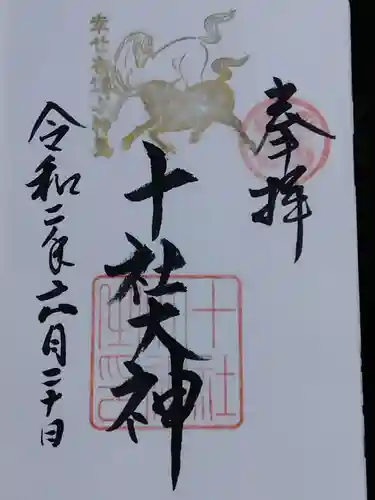 奉拝
十社大神
令和二年六月二十日